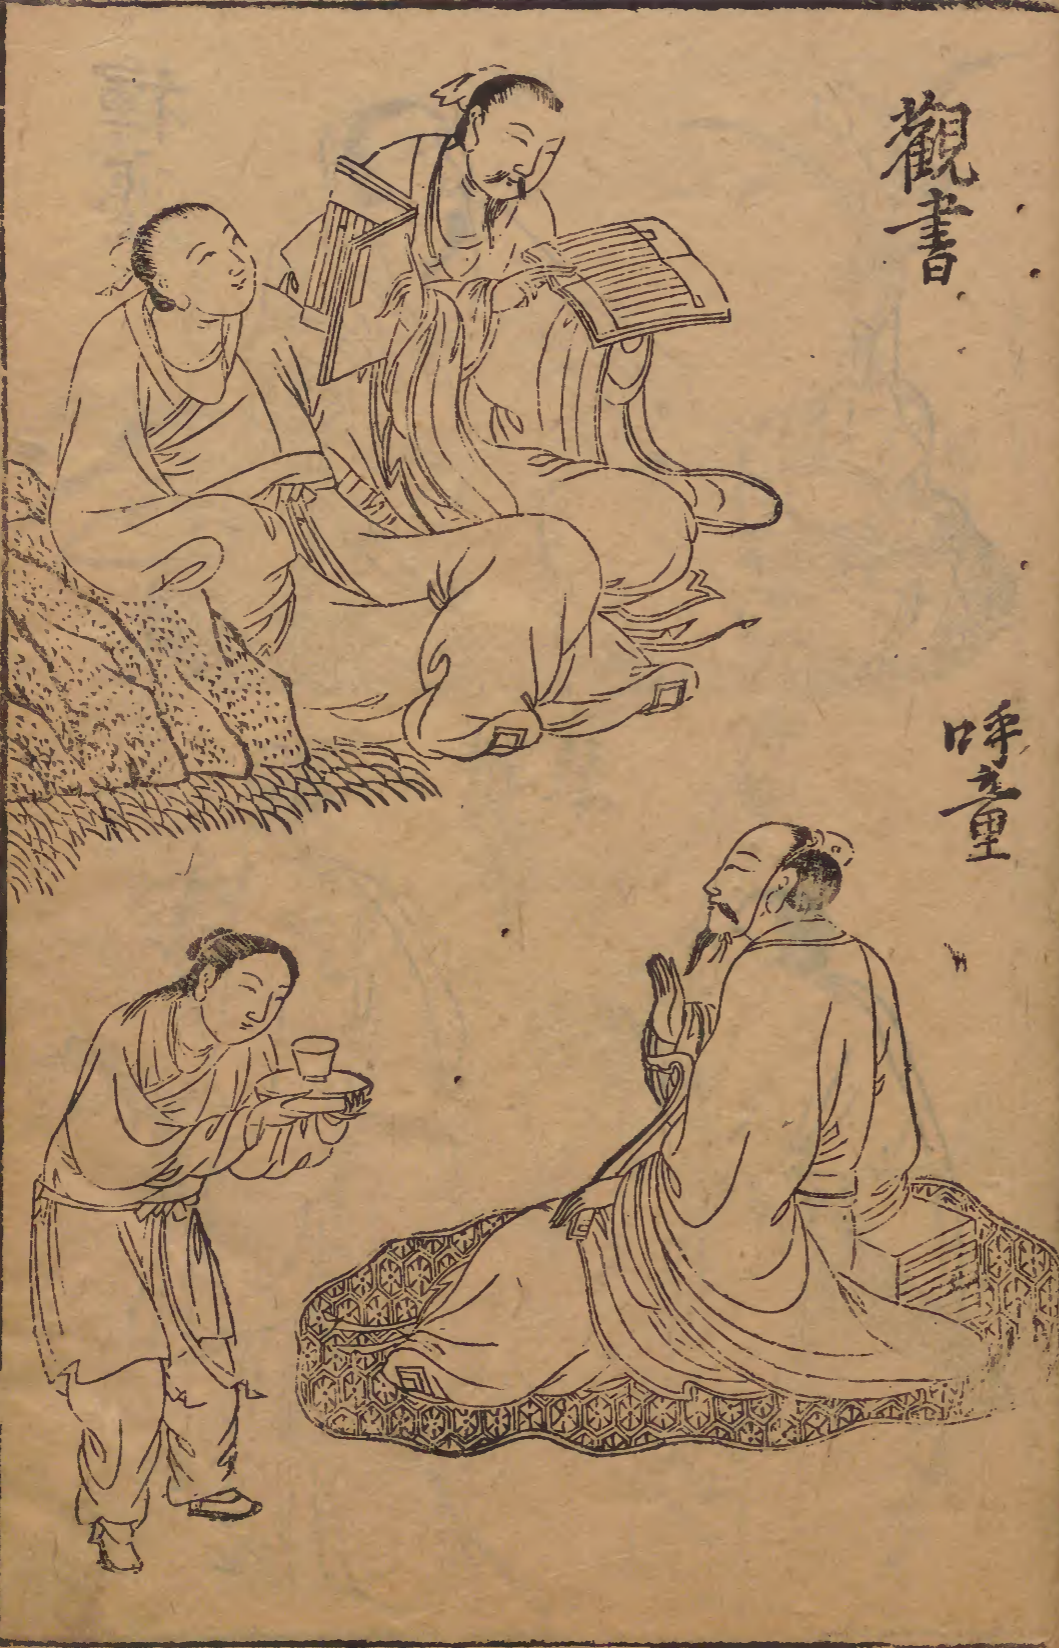 觀書
呼童